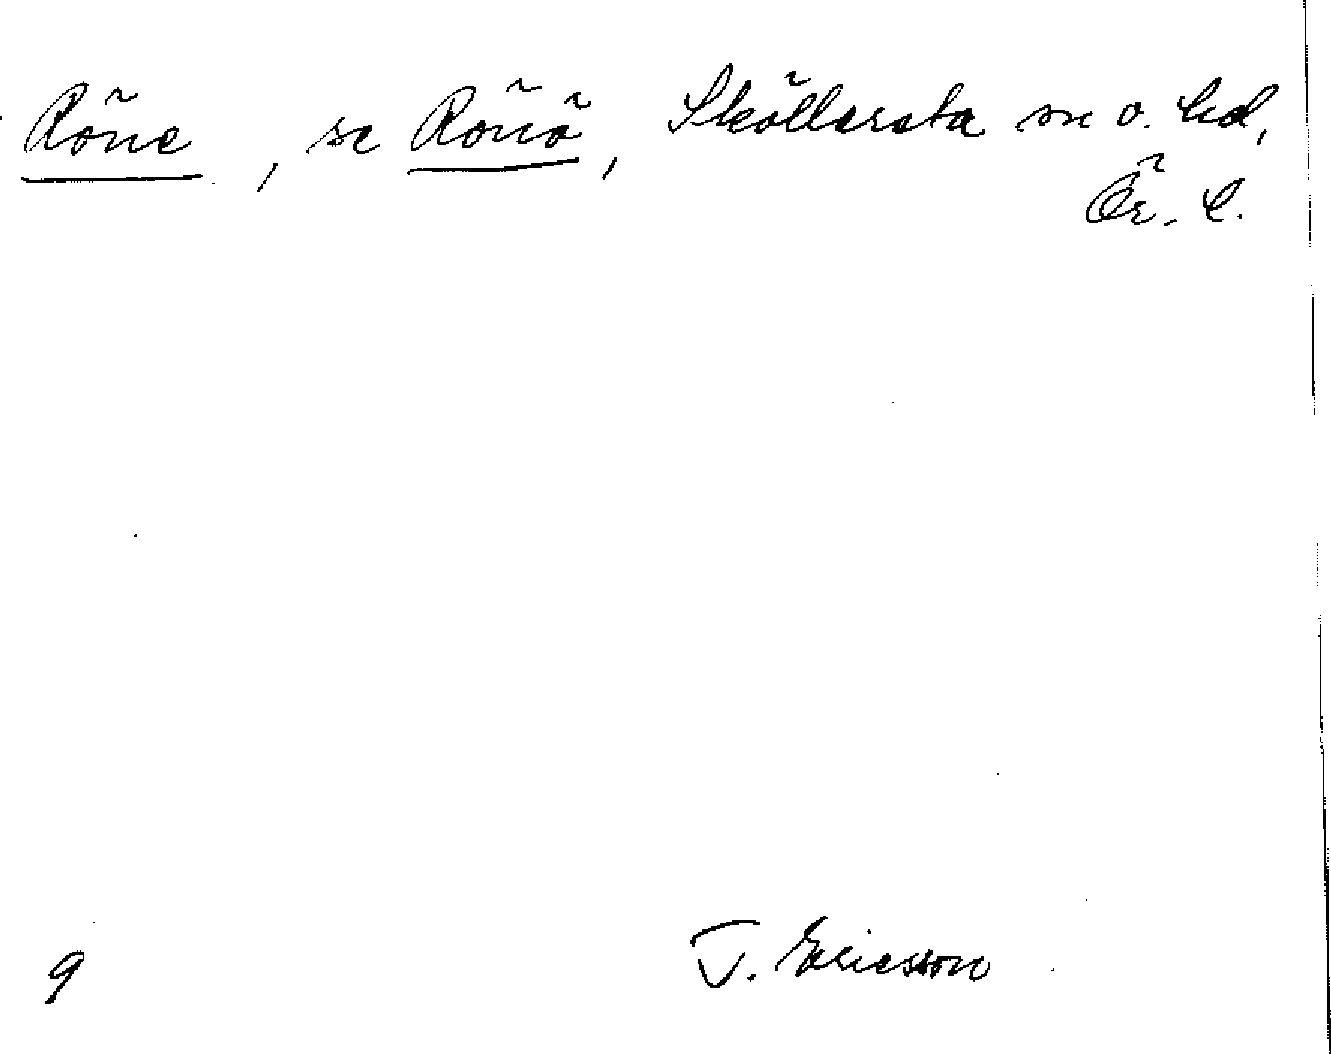 Röne, se Rönö, Sköllersta sn o. hd,
Ör. l.
9
J. Ericsson